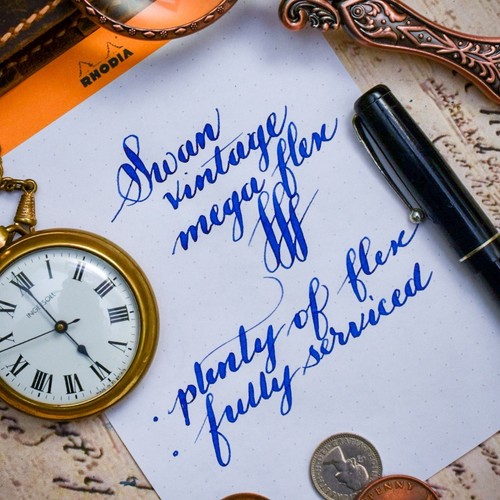 RHODIA
Swan
vintage
mega flex
fff
• plenty of flex
• fully serviced
INGERSOLL
XII
I
II
III
IIII
V
VI
VII
VIII
XI
PENNY